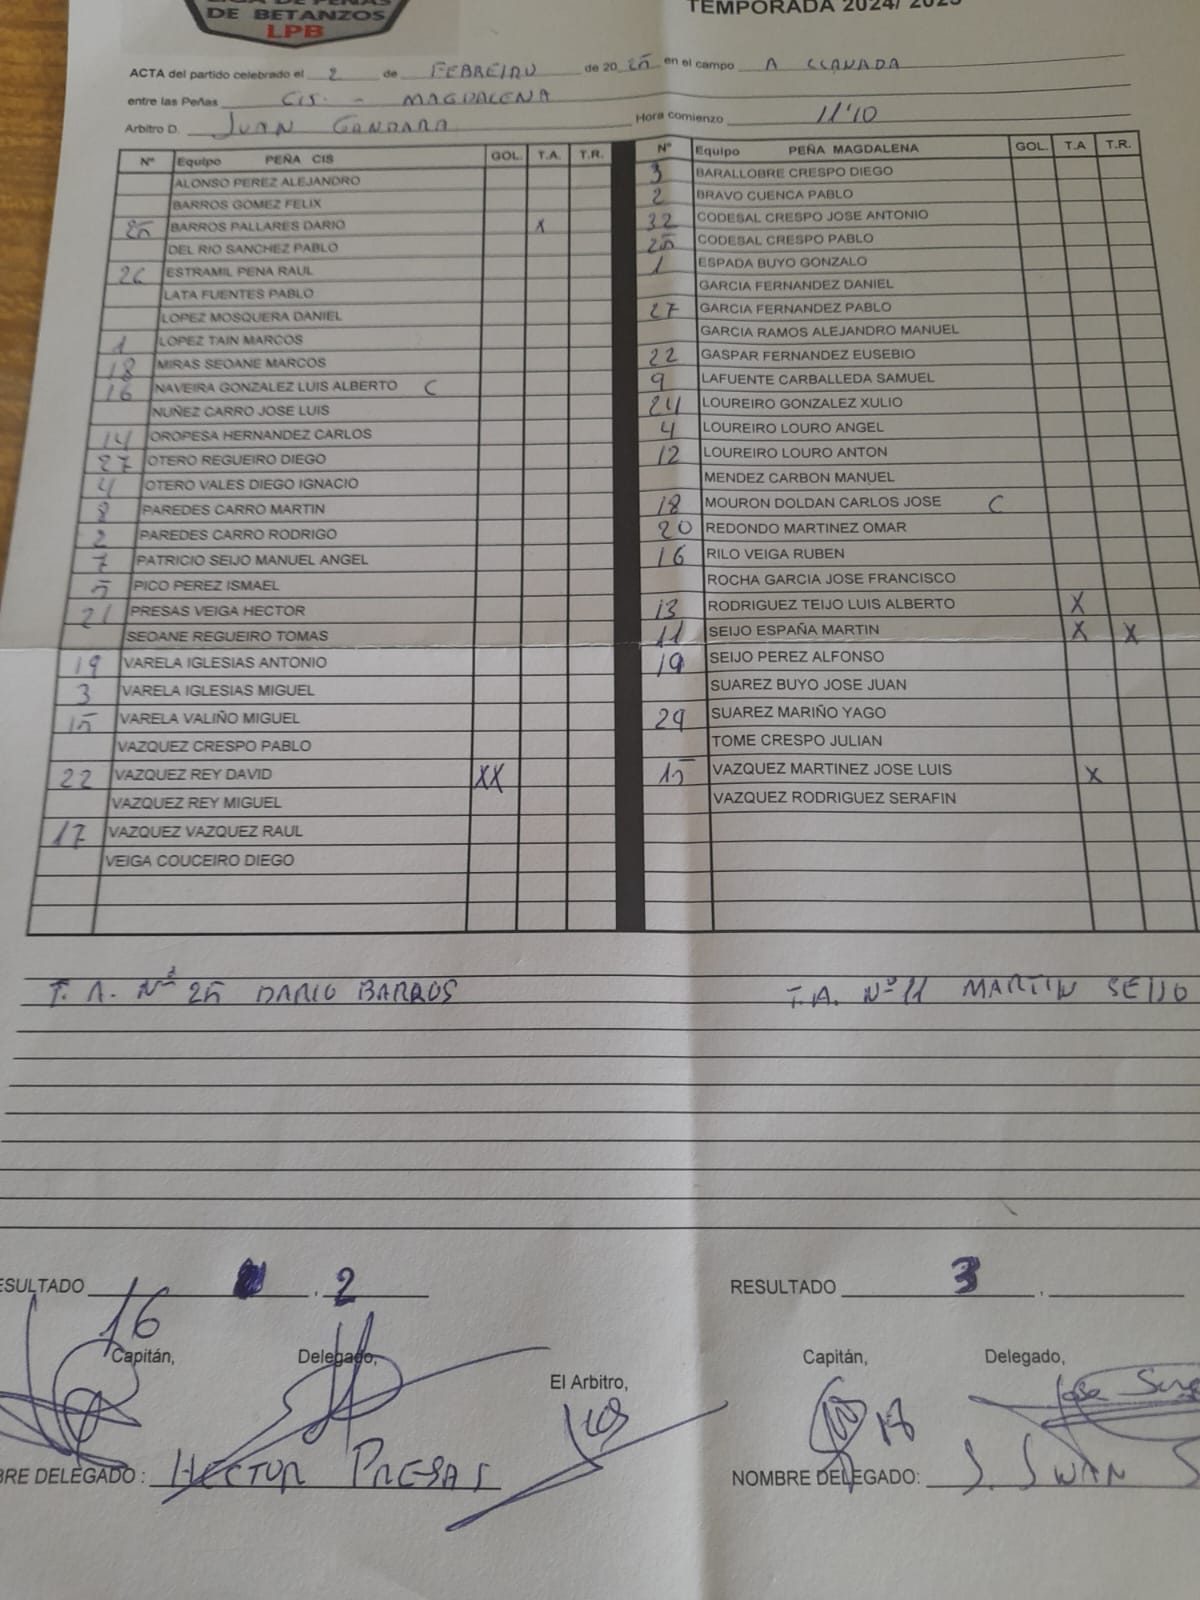 LIGA DE PEÑAS
DE BETANZOS
LPB
TEMPORADA 2024/ 2025
ACTA del partido celebrado el 2 de FEBREIRO de 2025 en el campo A CLANADA
entre las Peñas CIS - MAGDALENA
Arbitro D. JUAN GANDARA Hora comienzo 11'10
Nº Equipo PEÑA CIS GOL. T.A. T.R.
ALONSO PEREZ ALEJANDRO
BARROS GOMEZ FELIX
25 BARROS PALLARES DARIO X
DEL RIO SANCHEZ PABLO
26 ESTRAMIL PENA RAUL
LATA FUENTES PABLO
LOPEZ MOSQUERA DANIEL
1 LOPEZ TAIN MARCOS
18 MIRAS SEOANE MARCOS
16 NAVEIRA GONZALEZ LUIS ALBERTO C
NUÑEZ CARRO JOSE LUIS
14 OROPESA HERNANDEZ CARLOS
27 OTERO REGUEIRO DIEGO
4 OTERO VALES DIEGO IGNACIO
8 PAREDES CARRO MARTIN
2 PAREDES CARRO RODRIGO
7 PATRICIO SEIJO MANUEL ANGEL
5 PICO PEREZ ISMAEL
21 PRESAS VEIGA HECTOR
SEOANE REGUEIRO TOMAS
19 VARELA IGLESIAS ANTONIO
3 VARELA IGLESIAS MIGUEL
15 VARELA VALIÑO MIGUEL
VAZQUEZ CRESPO PABLO
22 VAZQUEZ REY DAVID XX
VAZQUEZ REY MIGUEL
17 VAZQUEZ VAZQUEZ RAUL
VEIGA COUCEIRO DIEGO
Nº Equipo PEÑA MAGDALENA GOL. T.A T.R.
3 BARALLOBRE CRESPO DIEGO
2 BRAVO CUENCA PABLO
32 CODESAL CRESPO JOSE ANTONIO
25 CODESAL CRESPO PABLO
1 ESPADA BUYO GONZALO
GARCIA FERNANDEZ DANIEL
27 GARCIA FERNANDEZ PABLO
GARCIA RAMOS ALEJANDRO MANUEL
22 GASPAR FERNANDEZ EUSEBIO
9 LAFUENTE CARBALLEDA SAMUEL
24 LOUREIRO GONZALEZ XULIO
4 LOUREIRO LOURO ANGEL
12 LOUREIRO LOURO ANTON
MENDEZ CARBON MANUEL
18 MOURON DOLDAN CARLOS JOSE C
20 REDONDO MARTINEZ OMAR
16 RILO VEIGA RUBEN
ROCHA GARCIA JOSE FRANCISCO
13 RODRIGUEZ TEIJO LUIS ALBERTO X
11 SEIJO ESPAÑA MARTIN X X
19 SEIJO PEREZ ALFONSO
SUAREZ BUYO JOSE JUAN
29 SUAREZ MARIÑO YAGO
TOME CRESPO JULIAN
15 VAZQUEZ MARTINEZ JOSE LUIS X
VAZQUEZ RODRIGUEZ SERAFIN
T. A. Nº 25 DARIO BARROS
T.A. Nº 11 MARTIN SEIJO
ESULTADO 2
RESULTADO 3
16
Capitán, Delegado,
El Arbitro,
Capitán, Delegado,
18
BRE DELEGADO : HECTOR PRESAS
NOMBRE DELEGADO: J. JUAN S